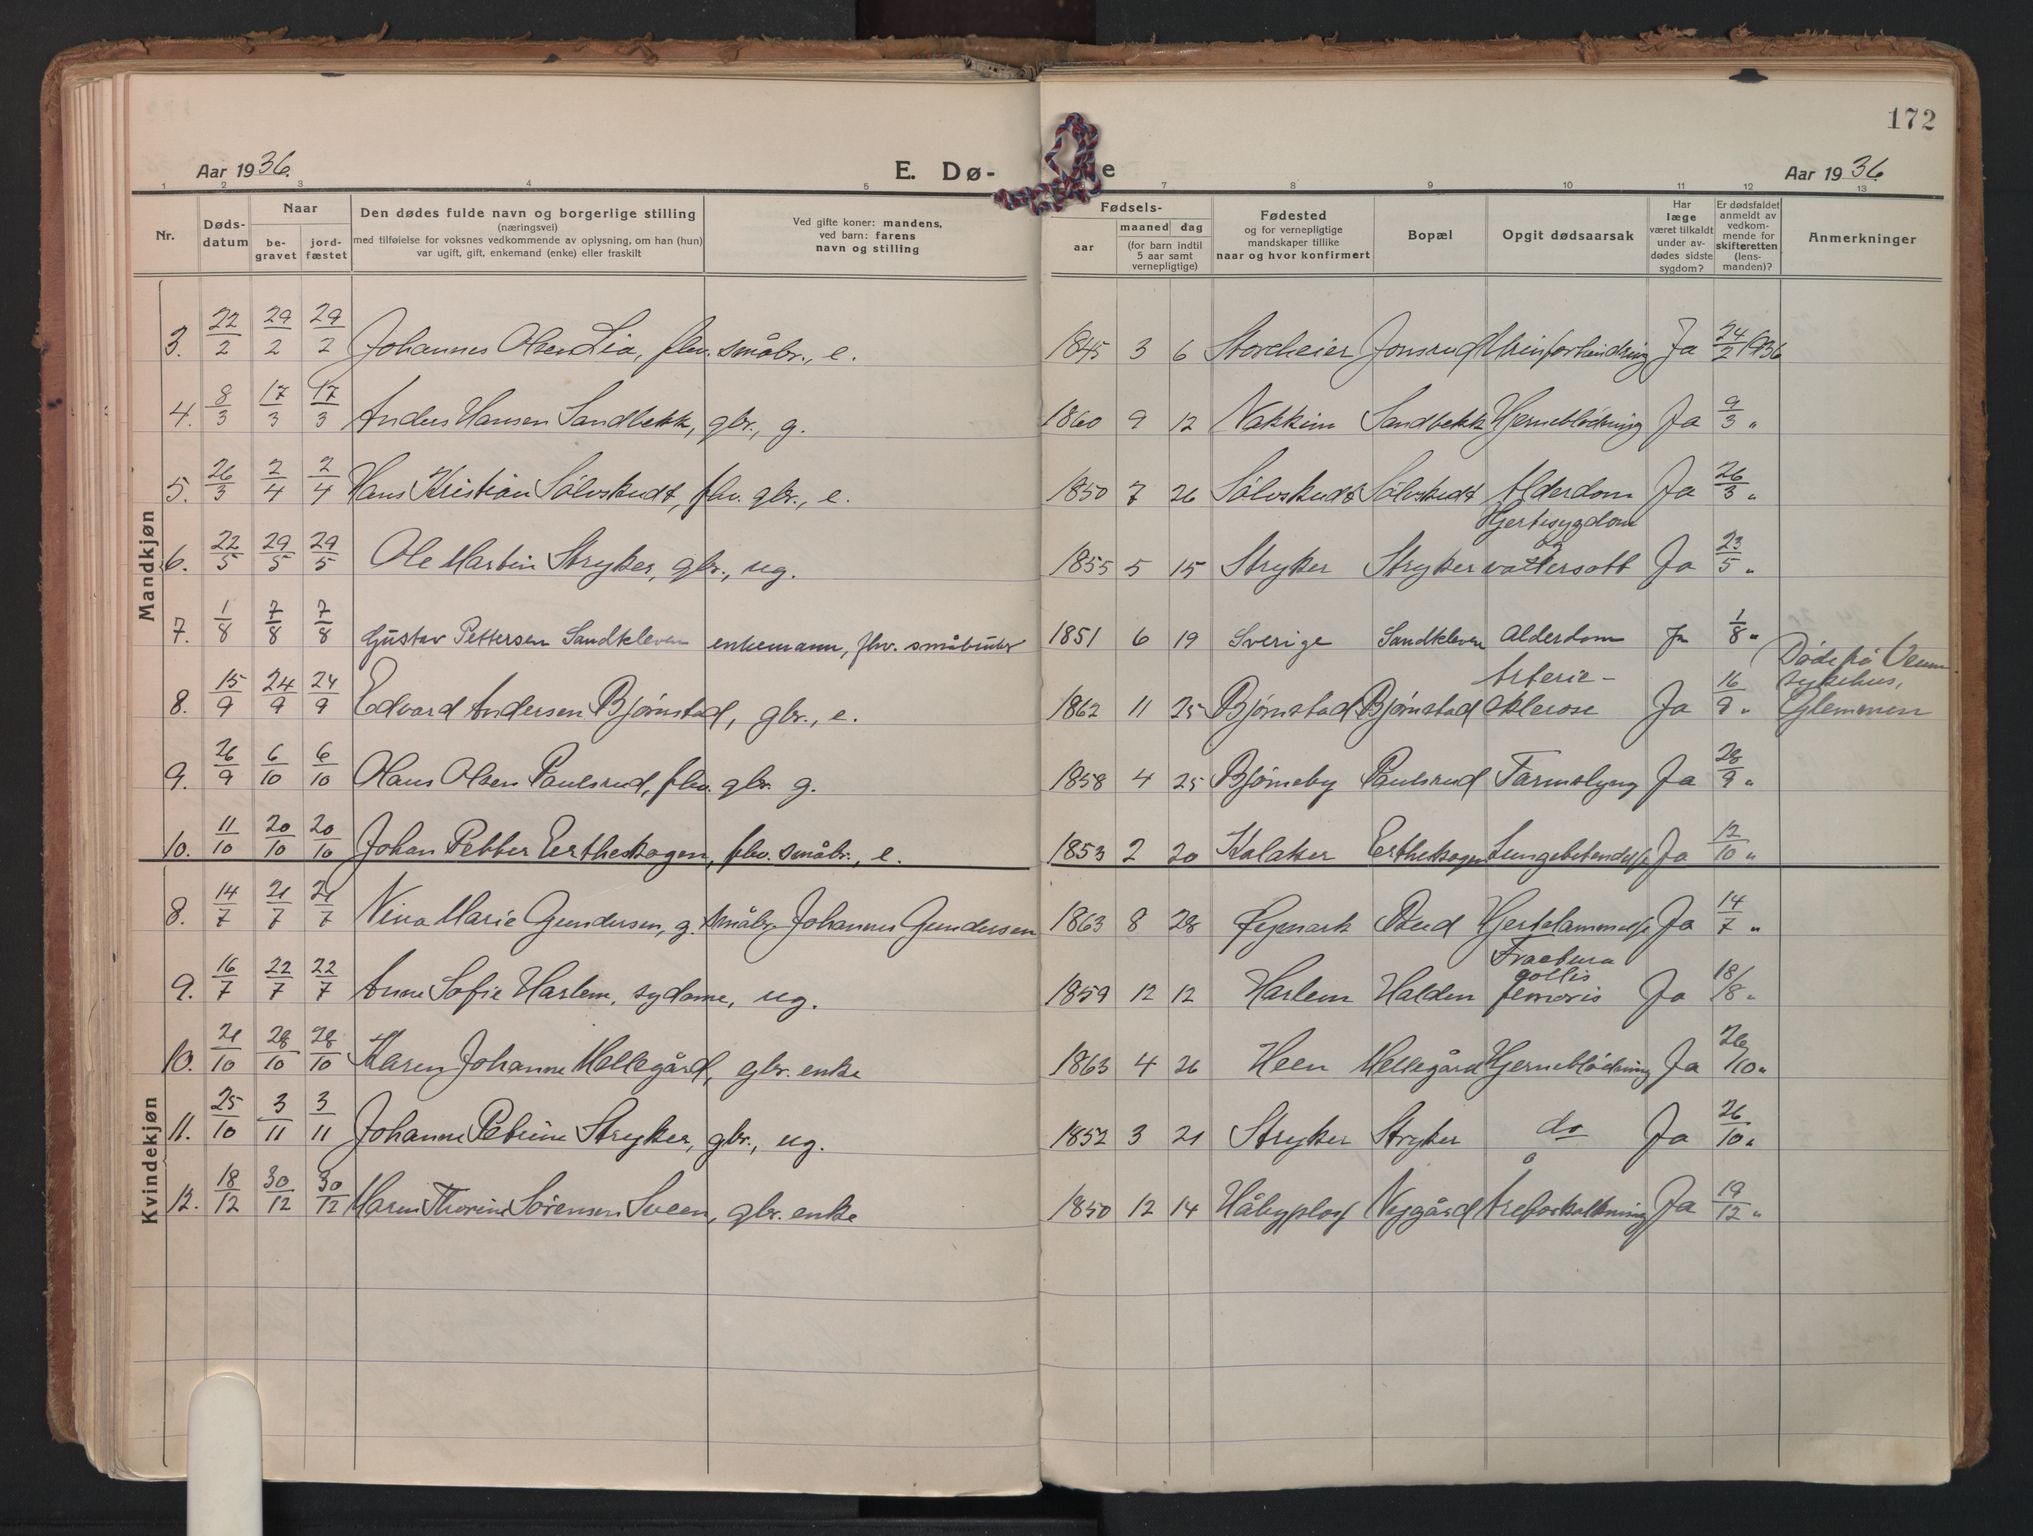 172
Aar 1936.
E. Dø- e
Aar 1936.
1 2 3 4 5 7 8 9 10 11 12 13
Nr.
Døds-
datum
Naar
be-
gravet
jord-
fæstet
Den dødes fulde navn og borgerlige stilling
(næringsvei)
med tilføielse for voksnes vedkommende av oplysning, om han (hun)
var ugift, gift, enkemand (enke) eller fraskilt
Ved gifte koner: mandens,
ved barn: farens
navn og stilling
Fødsels-
aar
maaned dag
(for barn indtil
5 aar samt
vernepligtige)
Fødested
og for vernepligtige
mandskaper tillike
naar og hvor konfirmert
Bopæl
Opgit dødsaarsak
Har
læge
været tilkaldt
under av-
dødes sidste
sygdom?
Er dødsfaldet
anmeldt av
vedkom-
mende for
skifteretten
(lens-
manden)?
Anmerkninger
Mandkjøn
3. 22/2 29/2 29/2 Johannes Olsen Lia, fhv. småbr., e. 1845 3 6 Storeheier Jonsrud Urinforhindring Ja 24/2 1936
4. 8/3 17/3 17/3 Anders Hansen Sandbekk, gbr., g. 1860 9 12 Nakkim Sandbekk Hjerneblødning Ja 9/3 "
5. 26/3 2/4 2/4 Hans Kristian Sølvskudt, fhv. gbr., e. 1850 7 26 Sølvskudt Sølvskudt Alderdom Ja 26/3 "
6. 22/5 29/5 29/5 Ole Martin Stryker, gbr., ug. 1855 5 15 Stryker Stryker Hjertesygdom
og
vattersott Ja 23/5 "
7. 1/8 7/8 7/8 Gustav Pettersen Sandkleven enkemann, fhv. småbruker 1851 6 19 Sverige Sandkleven Alderdom Ja 1/8 "
8. 15/9 24/9 24/9 Edvard Andersen Bjørnstad, gbr., e. 1862 11 25 Bjørnstad Bjørnstad Arterie-
sklerose Ja 16/9 " Døde på Veum
sykehus,
Glemmen
9. 26/9 6/10 6/10 Hans Olsen Paulsrud, fhv. gbr. g. 1858 4 25 Bjørneby Paulsrud Tarmslyng Ja 28/9 "
10. 11/10 20/10 20/10 Johan Petter Ertheskogen, fhv. småbr., e. 1853 2 20 Kolaker Ertheskogen Lungebetendelse Ja 12/10 "
Kvindekjøn
8. 14/7 21/7 21/7 Nina Marie Gundersen, g. småbr. Johannes Gundersen 1863 8 28 Øymark Rud Hjertelammelse Ja 14/7 "
9. 16/7 22/7 22/7 Anne Sofie Harlem, sydame, ug. 1859 12 12 Harlem Halden Fractura
collis
femoris Ja 18/8 "
10. 21/10 28/10 28/10 Karen Johanne Mellegård, gbr. enke 1863 4 26 Heen Mellegård Hjerneblødning Ja 26/10 "
11. 25/10 3/11 3/11 Johanne Petrine Stryker, gbr., ug. 1852 3 21 Stryker Stryker do Ja 26/10 "
12. 18/12 30/12 30/12 Maren Thorine Sørensen Sveen, gbr. enke 1850 12 14 Håbyplass Nygård Åreforkalkning Ja 19/12 "